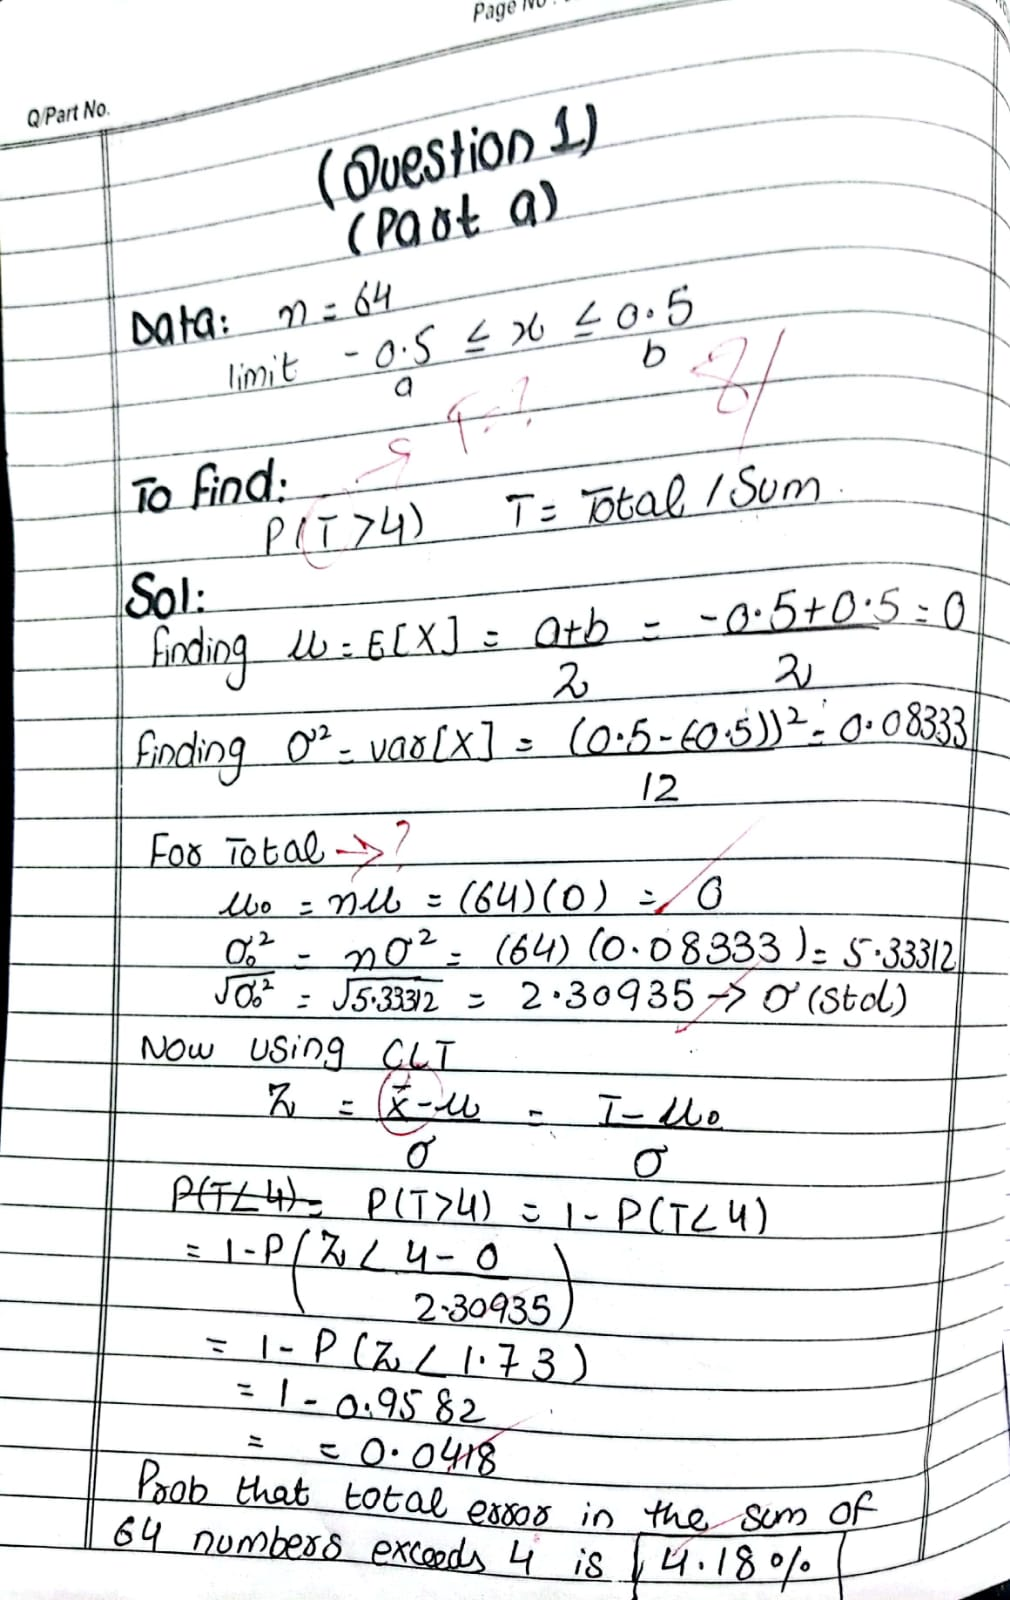 Page No.
Q/Part No.
(Question 1)
(Part a)
Data: n = 64
limit -0.5 ≤ x ≤ 0.5
a b
8/
To find:
P(T>4) T = Total / Sum.
Sol:
finding μ = E[X] = a+b/2 = -0.5+0.5/2 = 0
finding σ² = var[X] = (0.5-(-0.5))²/12 = 0.08333
For Total →?
μ₀ = nμ = (64)(0) = 0
σ₀² = nσ² = (64)(0.08333) = 5.33312
√σ₀² = √5.33312 = 2.30935 → σ (Std)
Now using CLT
Z = x̄-μ/σ = T-μ₀/σ
P(T<4)= P(T>4) = 1-P(T<4)
= 1-P(Z < 4-0/2.30935)
= 1-P(Z < 1.73)
= 1-0.9582
= = 0.0418
Prob that total error in the sum of
64 numbers exceeds 4 is 4.18%